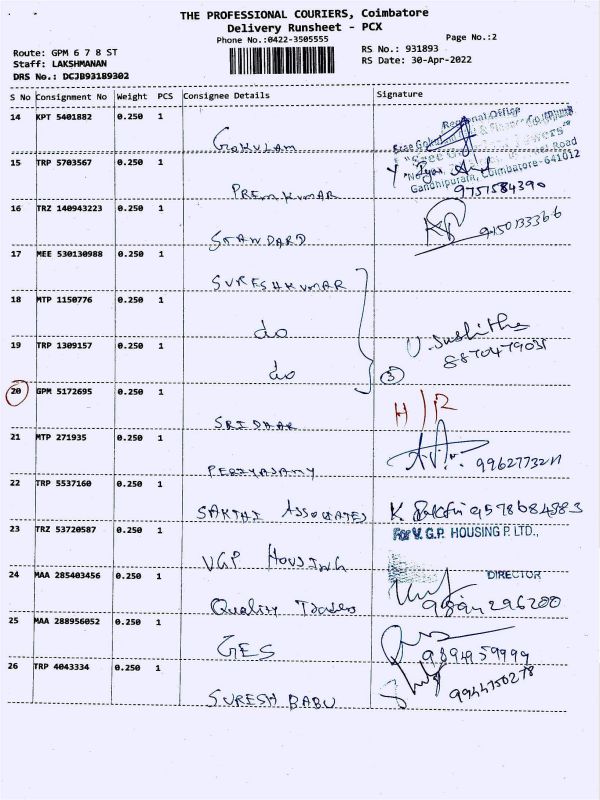 THE PROFESSIONAL COURIERS, Coimbatore
Delivery Runsheet - PCX
Phone No.:0422-3505555
Page No.:2
Route: GPM 6 7 8 ST
RS No.: 931893
Staff: LAKSHMANAN
RS Date: 30-Apr-2022
DRS No.: DCJB93189302
S No Consignment No Weight PCS Consignee Details Signature
14 KPT 5401882 0.250 1
Regional Office
GOKULAM
Gandhipuram, Coimbatore-641012
15 TRP 5703567 0.250 1
9757584390
PREMKUMAR
16 TRZ 140943223 0.250 1
9150133366
STANDARD
17 MEE 530130988 0.250 1
SURESHKUMAR
18 MTP 1150776 0.250 1
do
19 TRP 1309157 0.250 1
U. Sushitha
8870479031
do
3
20 GPM 5172695 0.250 1
H/R
SRIDHAR
21 MTP 271935 0.250 1
PERIYASAMY
22 TRP 5537160 0.250 1
SAKTHI ASSOCIATES K Sakthi 9578684983
23 TRZ 53720587 0.250 1
For V.G.P. HOUSING P. LTD.,
VGP HOUSING
24 MAA 285403456 0.250 1
DIRECTOR
Quality Traders
9894296200
25 MAA 288956052 0.250 1
GES
9894959999
26 TRP 4043334 0.250 1
9944750278
SURESH BABU